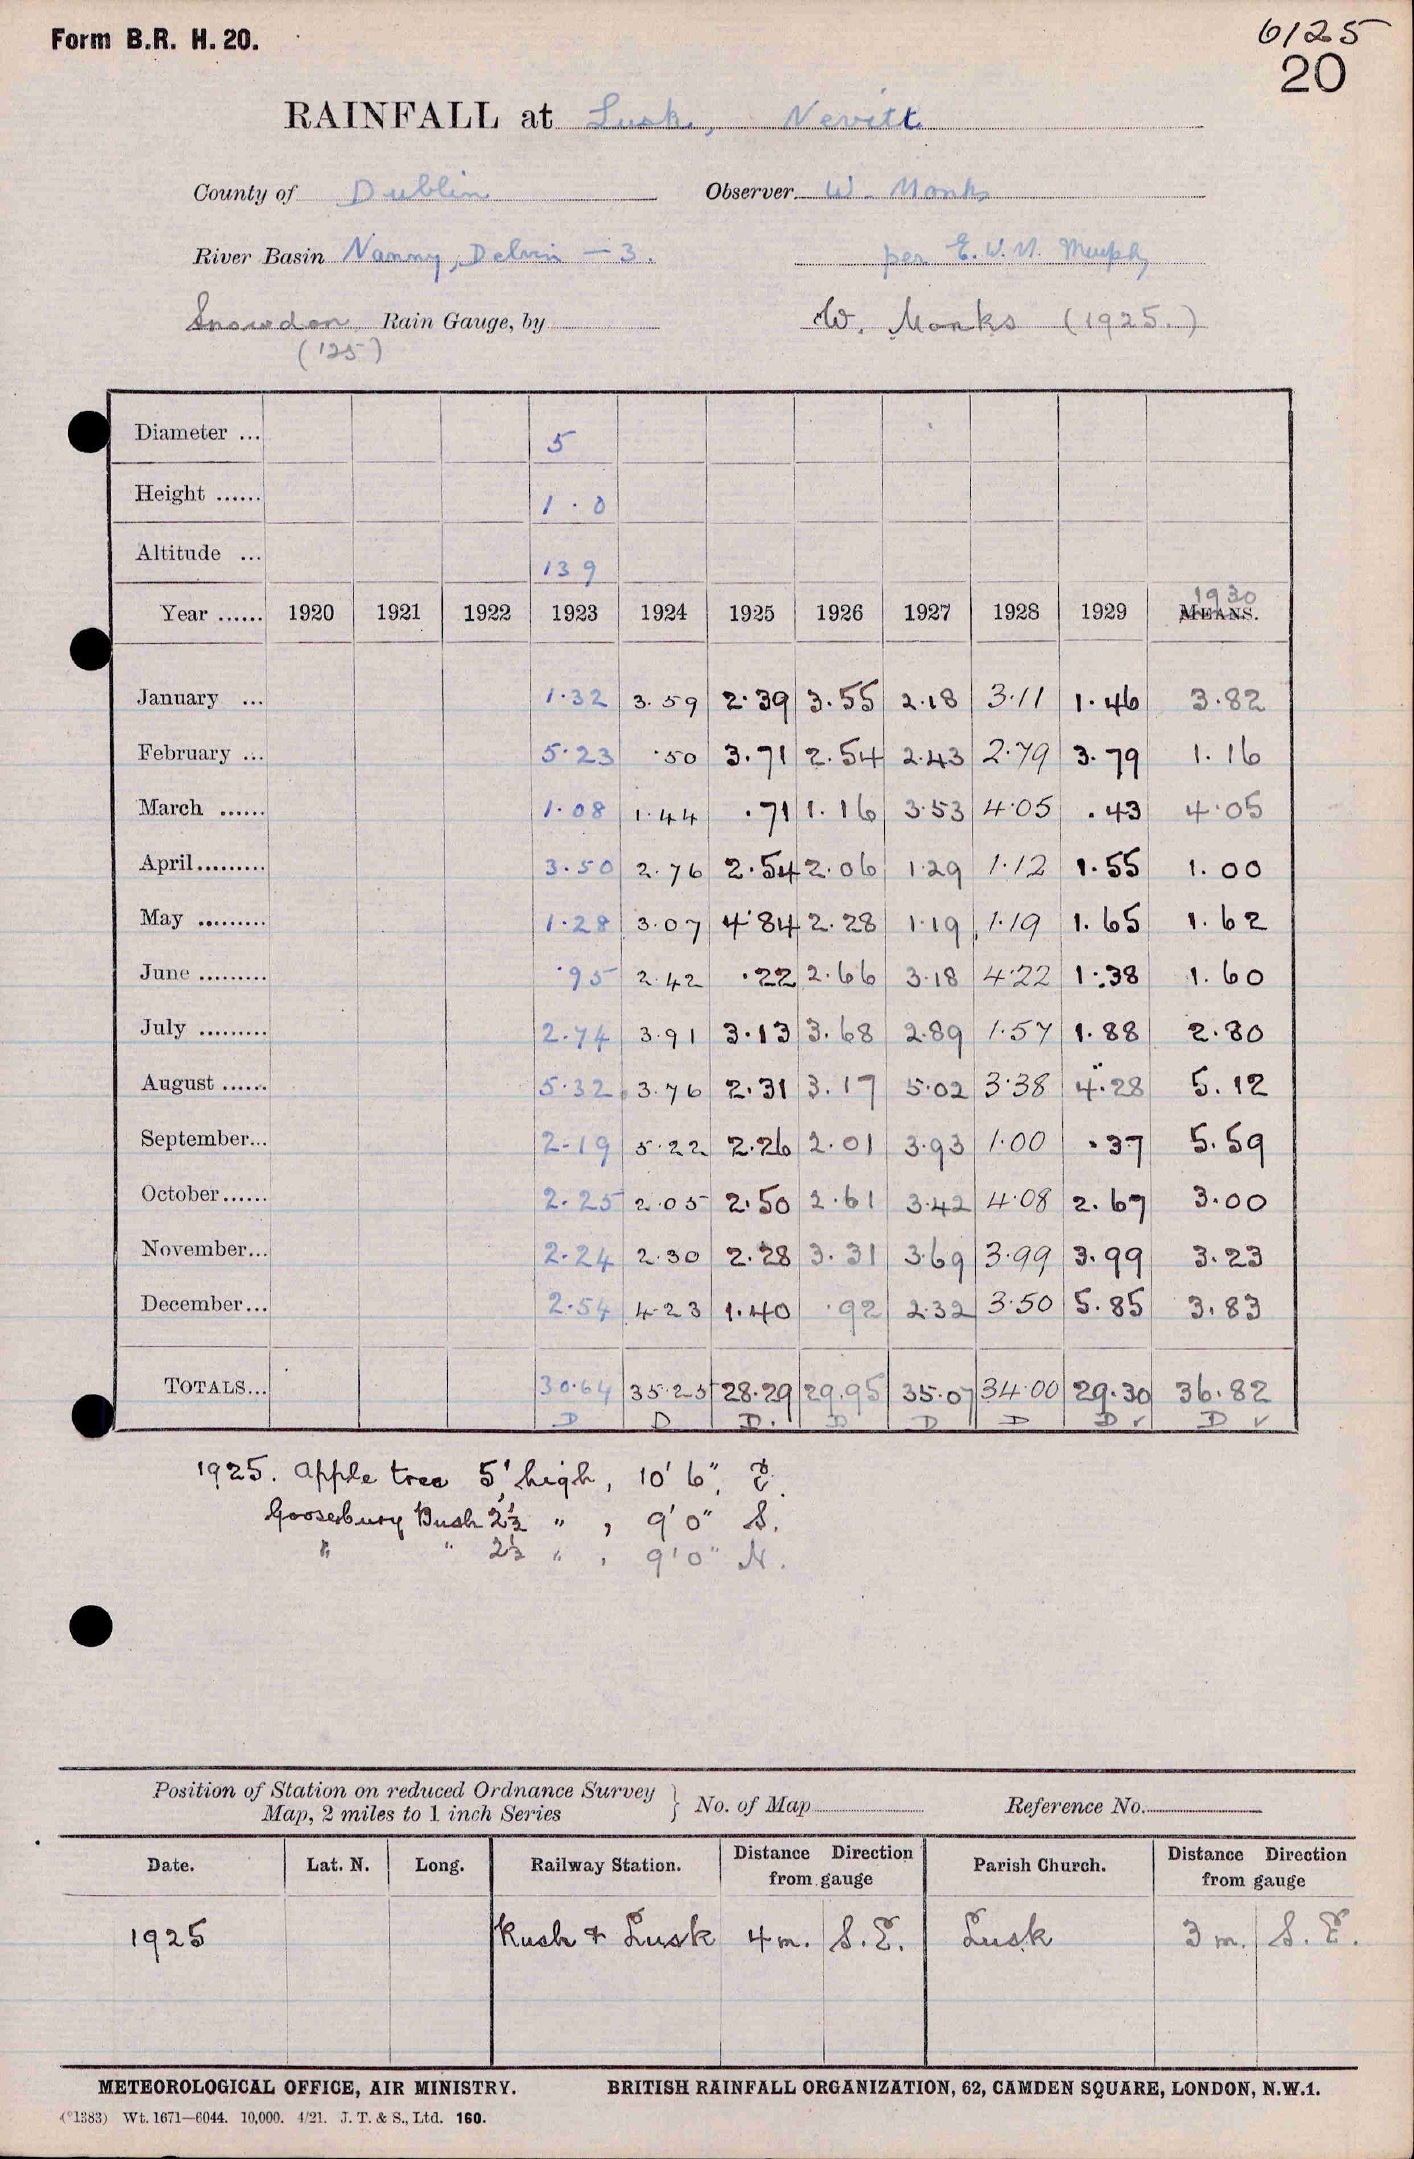 Form B.R. H. 20.
6125
20
RAINFALL at Lusk, Nevitt
County of Dublin Observer W. Monks
River Basin Nanny, Delvin — 3. per E. W. M. Murphy
Snowdon Rain Gauge, by W. Monks (1925.)
('25)
Diameter ... 5
Height ...... 1.0
Altitude ... 139
1930
Year ...... 1920 1921 1922 1923 1924 1925 1926 1927 1928 1929 MEANS.
January ... 1.32 3.59 2.39 3.55 2.18 3.11 1.46 3.82
February ... 5.23 .50 3.71 2.54 2.43 2.79 3.79 1.16
March ...... 1.08 1.44 .71 1.16 3.53 4.05 .43 4.05
April......... 3.50 2.76 2.54 2.06 1.29 1.12 1.55 1.00
May ......... 1.28 3.07 4.84 2.28 1.19 1.19 1.65 1.62
June ......... .95 2.42 .22 2.66 3.18 4.22 1.38 1.60
July ......... 2.74 3.91 3.13 3.68 2.89 1.57 1.88 2.80
August ...... 5.32 3.76 2.31 3.17 5.02 3.38 4.28 5.12
September... 2.19 5.22 2.26 2.01 3.93 1.00 .37 5.59
October...... 2.25 2.05 2.50 2.61 3.42 4.08 2.67 3.00
November... 2.24 2.30 2.28 3.31 3.69 3.99 3.99 3.23
December... 2.54 4.23 1.40 .92 2.32 3.50 5.85 3.83
TOTALS... 30.64 35.25 28.29 29.95 35.07 34.00 29.30 36.82
D D D. D D D D ✓ D ✓
1925. Apple tree 5' high, 10' 6", E.
Goosebury Bush 2½ " , 9' 0" S.
" " 2½ " , 9' 0" N.
Position of Station on reduced Ordnance Survey
Map, 2 miles to 1 inch Series } No. of Map Reference No.
Date. Lat. N. Long. Railway Station. Distance Direction from gauge Parish Church. Distance Direction from gauge
1925 Rush & Lusk 4 m. S.E. Lusk 3 m. S.E.
METEOROLOGICAL OFFICE, AIR MINISTRY. BRITISH RAINFALL ORGANIZATION, 62, CAMDEN SQUARE, LONDON, N.W.1.
(*1383) Wt. 1671—6044. 10,000. 4/21. J. T. & S., Ltd. 160.